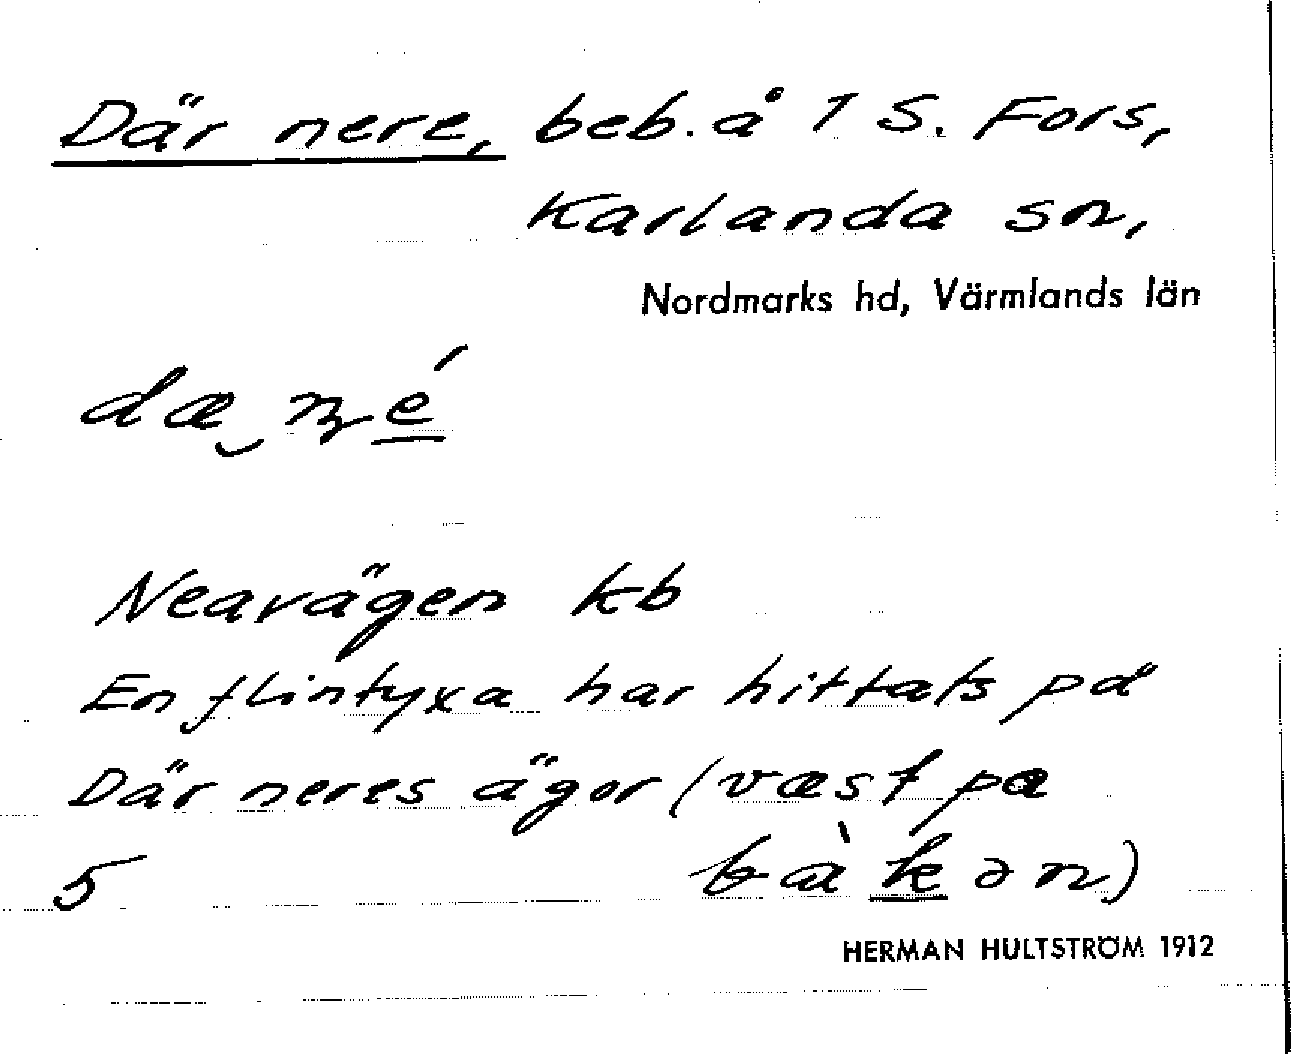 Där nere, beb. å 1 S. Fors,
Karlanda sn,
Nordmarks hd, Värmlands län
dæ né
Neavägen kb
En flintyxa har hittats på
Där neres ägor (væst pa
5 bàkən)
HERMAN HULTSTRÖM 1912